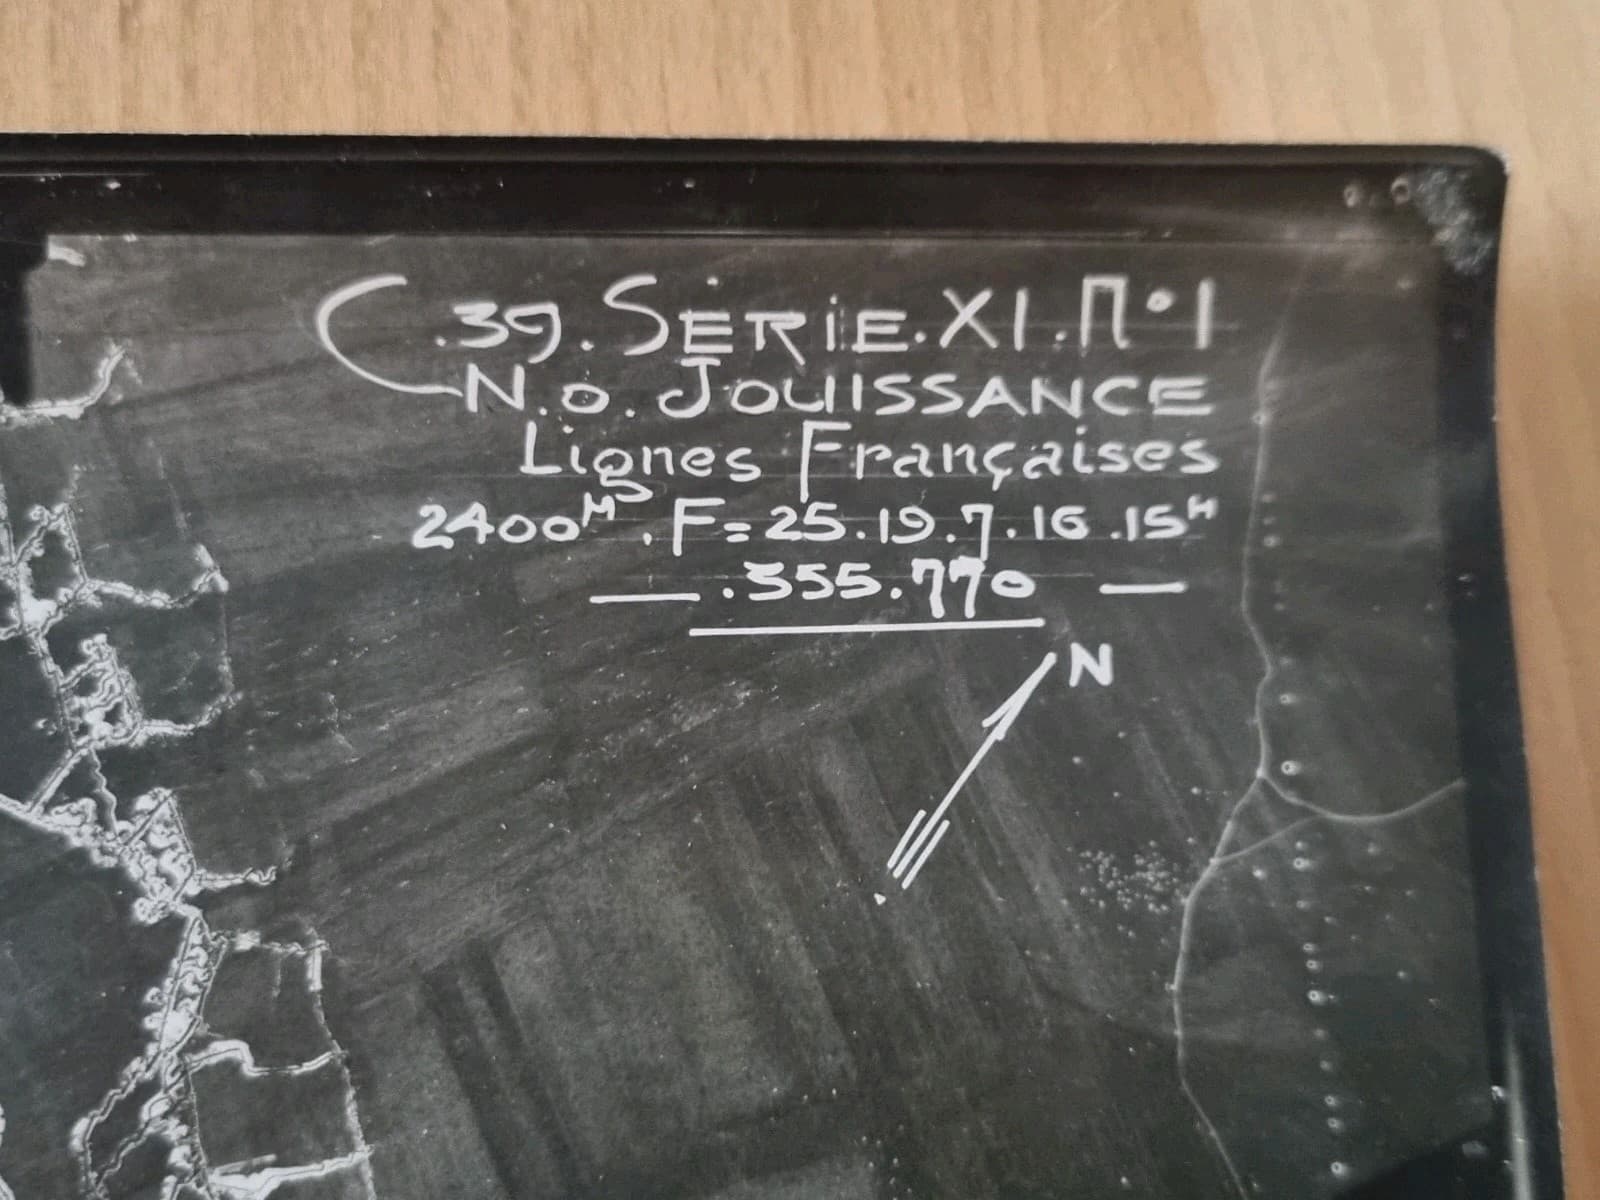 C.39.SÉRIE.XI.N°1
N.O. JOUISSANCE
Lignes Françaises
2400M.F=25.19.7.16.15H
.355.770
N